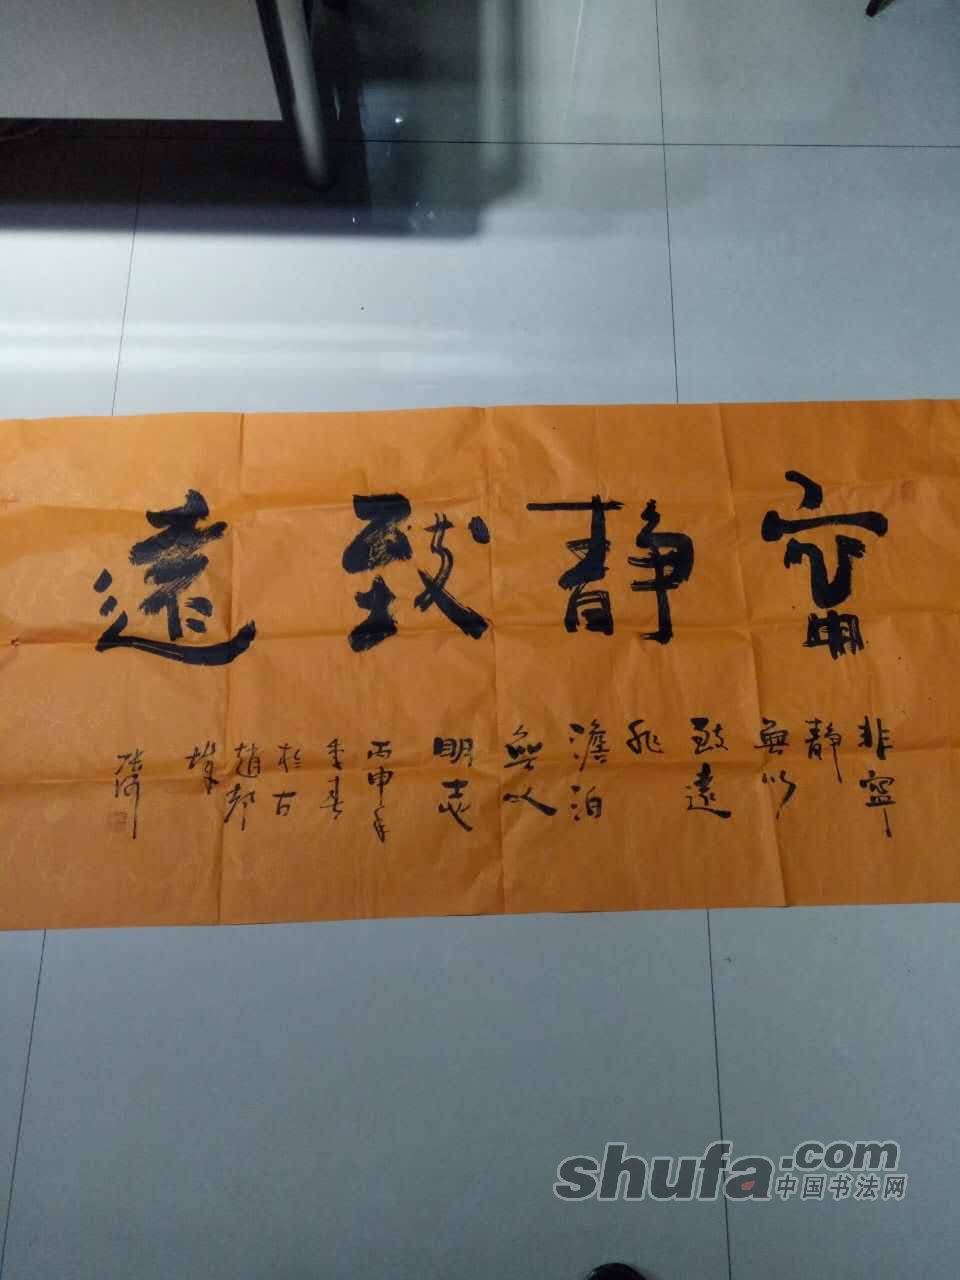 甯静致遠
非寧
靜
無以
致遠
非
澹泊
無以
明志
丙申年
季春
於古
趙都
shufa.com
中国书法网